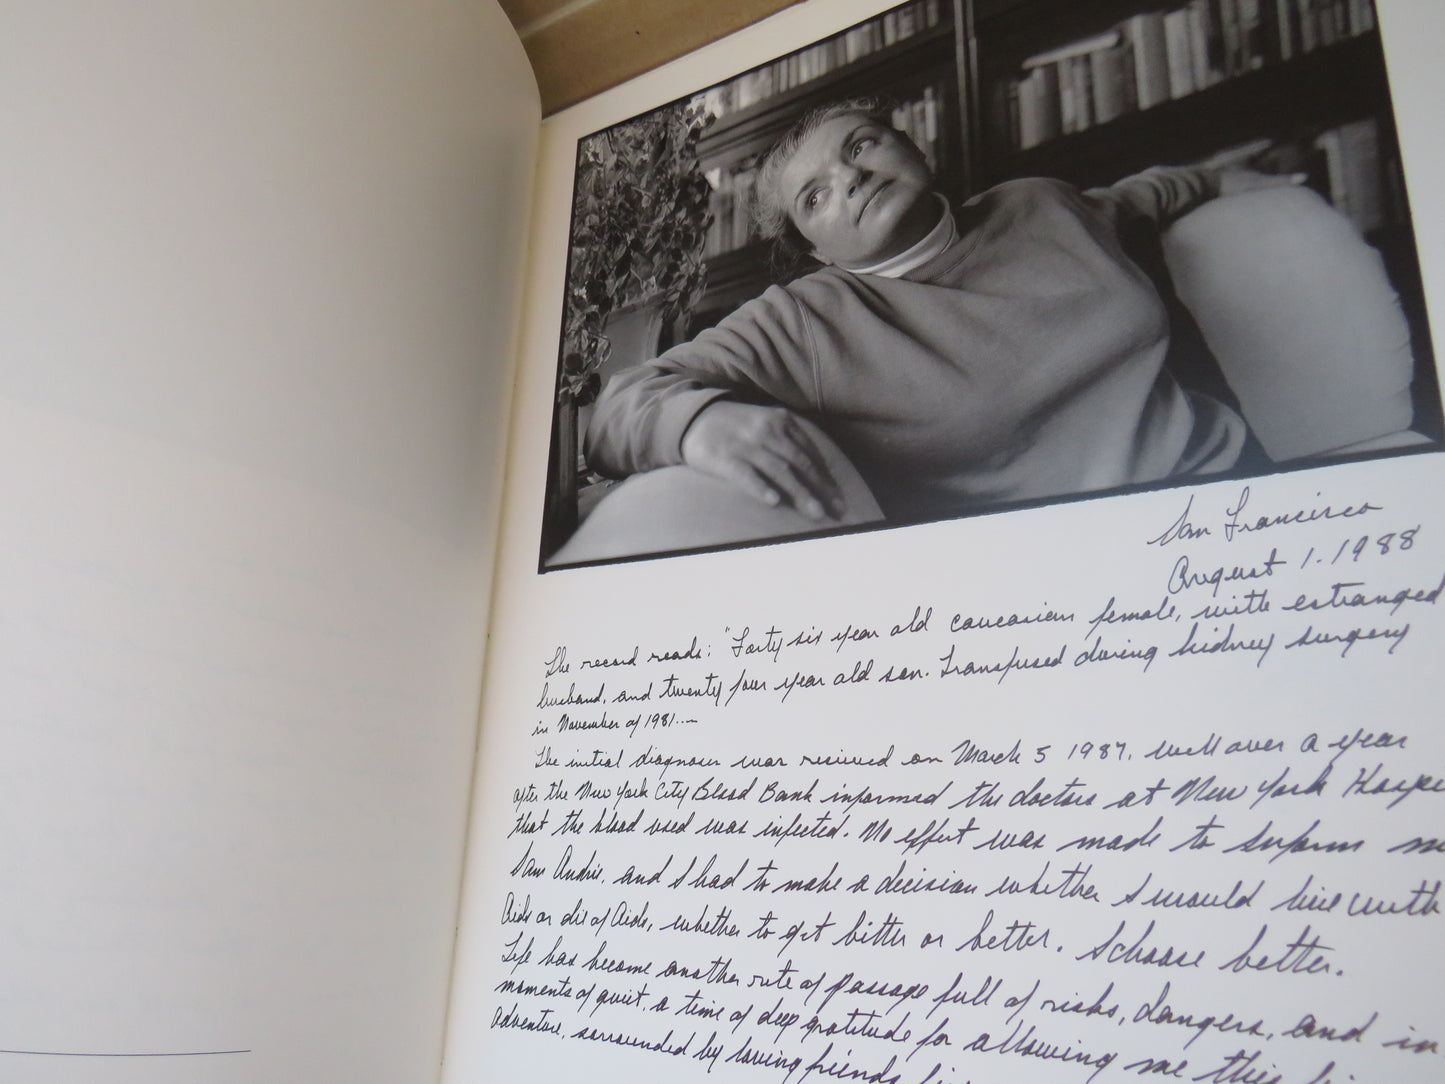 San Francisco
August 1. 1988
The record reads: "Forty six year old caucasian female, with estranged
husband, and twenty four year old son. Transfused during kidney surgery
in November of 1981....
The initial diagnoses was recieved on March 5 1987, well over a year
after the New York City Blood Bank informed the doctors at New York Hospi
that the blood used was infected. No effort was made to inform m
I am Andrie, and I had to make a decision whether I would live with
Aids or die of Aids, whether to get bitter or better. I choose better.
Life has become another rite of passage full of risks, dangers, and in
moments of quiet, a time of deep gratitude for allowing me this
adventure, surrounded by loving friends